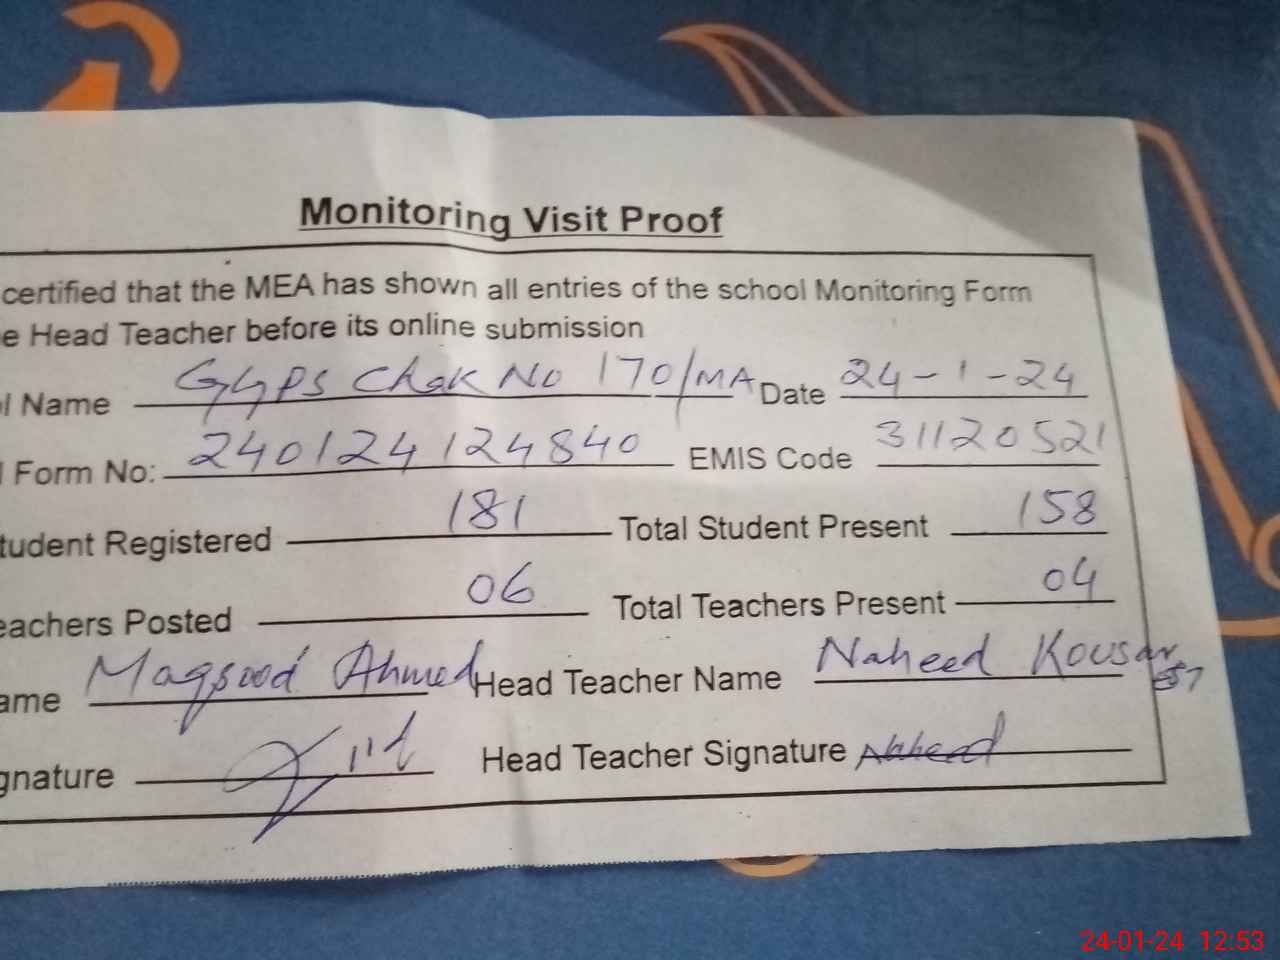 Monitoring Visit Proof
certified that the MEA has shown all entries of the school Monitoring Form
e Head Teacher before its online submission
l Name GGPS Chak No 170/MA Date 24-1-24
l Form No: 240124124840 EMIS Code 31120521
tudent Registered 181 Total Student Present 158
eachers Posted 06 Total Teachers Present 04
ame Maqsood Ahmed Head Teacher Name Naheed Kousar
gnature Head Teacher Signature Naheed
24-01-24 12:53